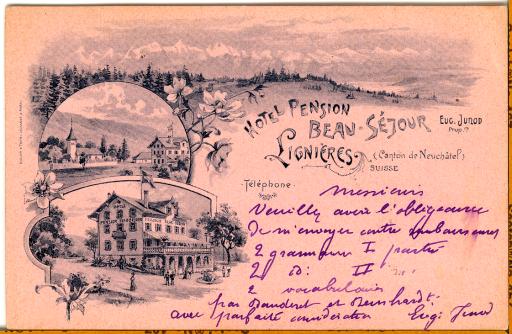 HÔTEL PENSION
BEAU-SÉJOUR
LIGNIÈRES
(Canton de Neuchâtel)
SUISSE
EUG. JUNOD
Prop.re
Téléphone
Messieurs
Veuillez avoir l'obligeance
de m'envoyer contre remboursement
2 grammaires I partie
2 id: II id.
2 vocabulaires
par Banderet et Reinhardt.
avec parfaite considération Eug: Junod